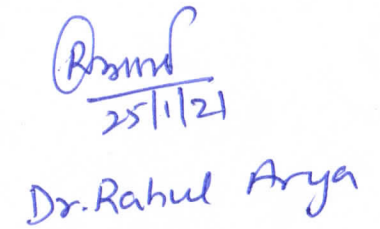 25/1/21
Dr. Rahul Arya